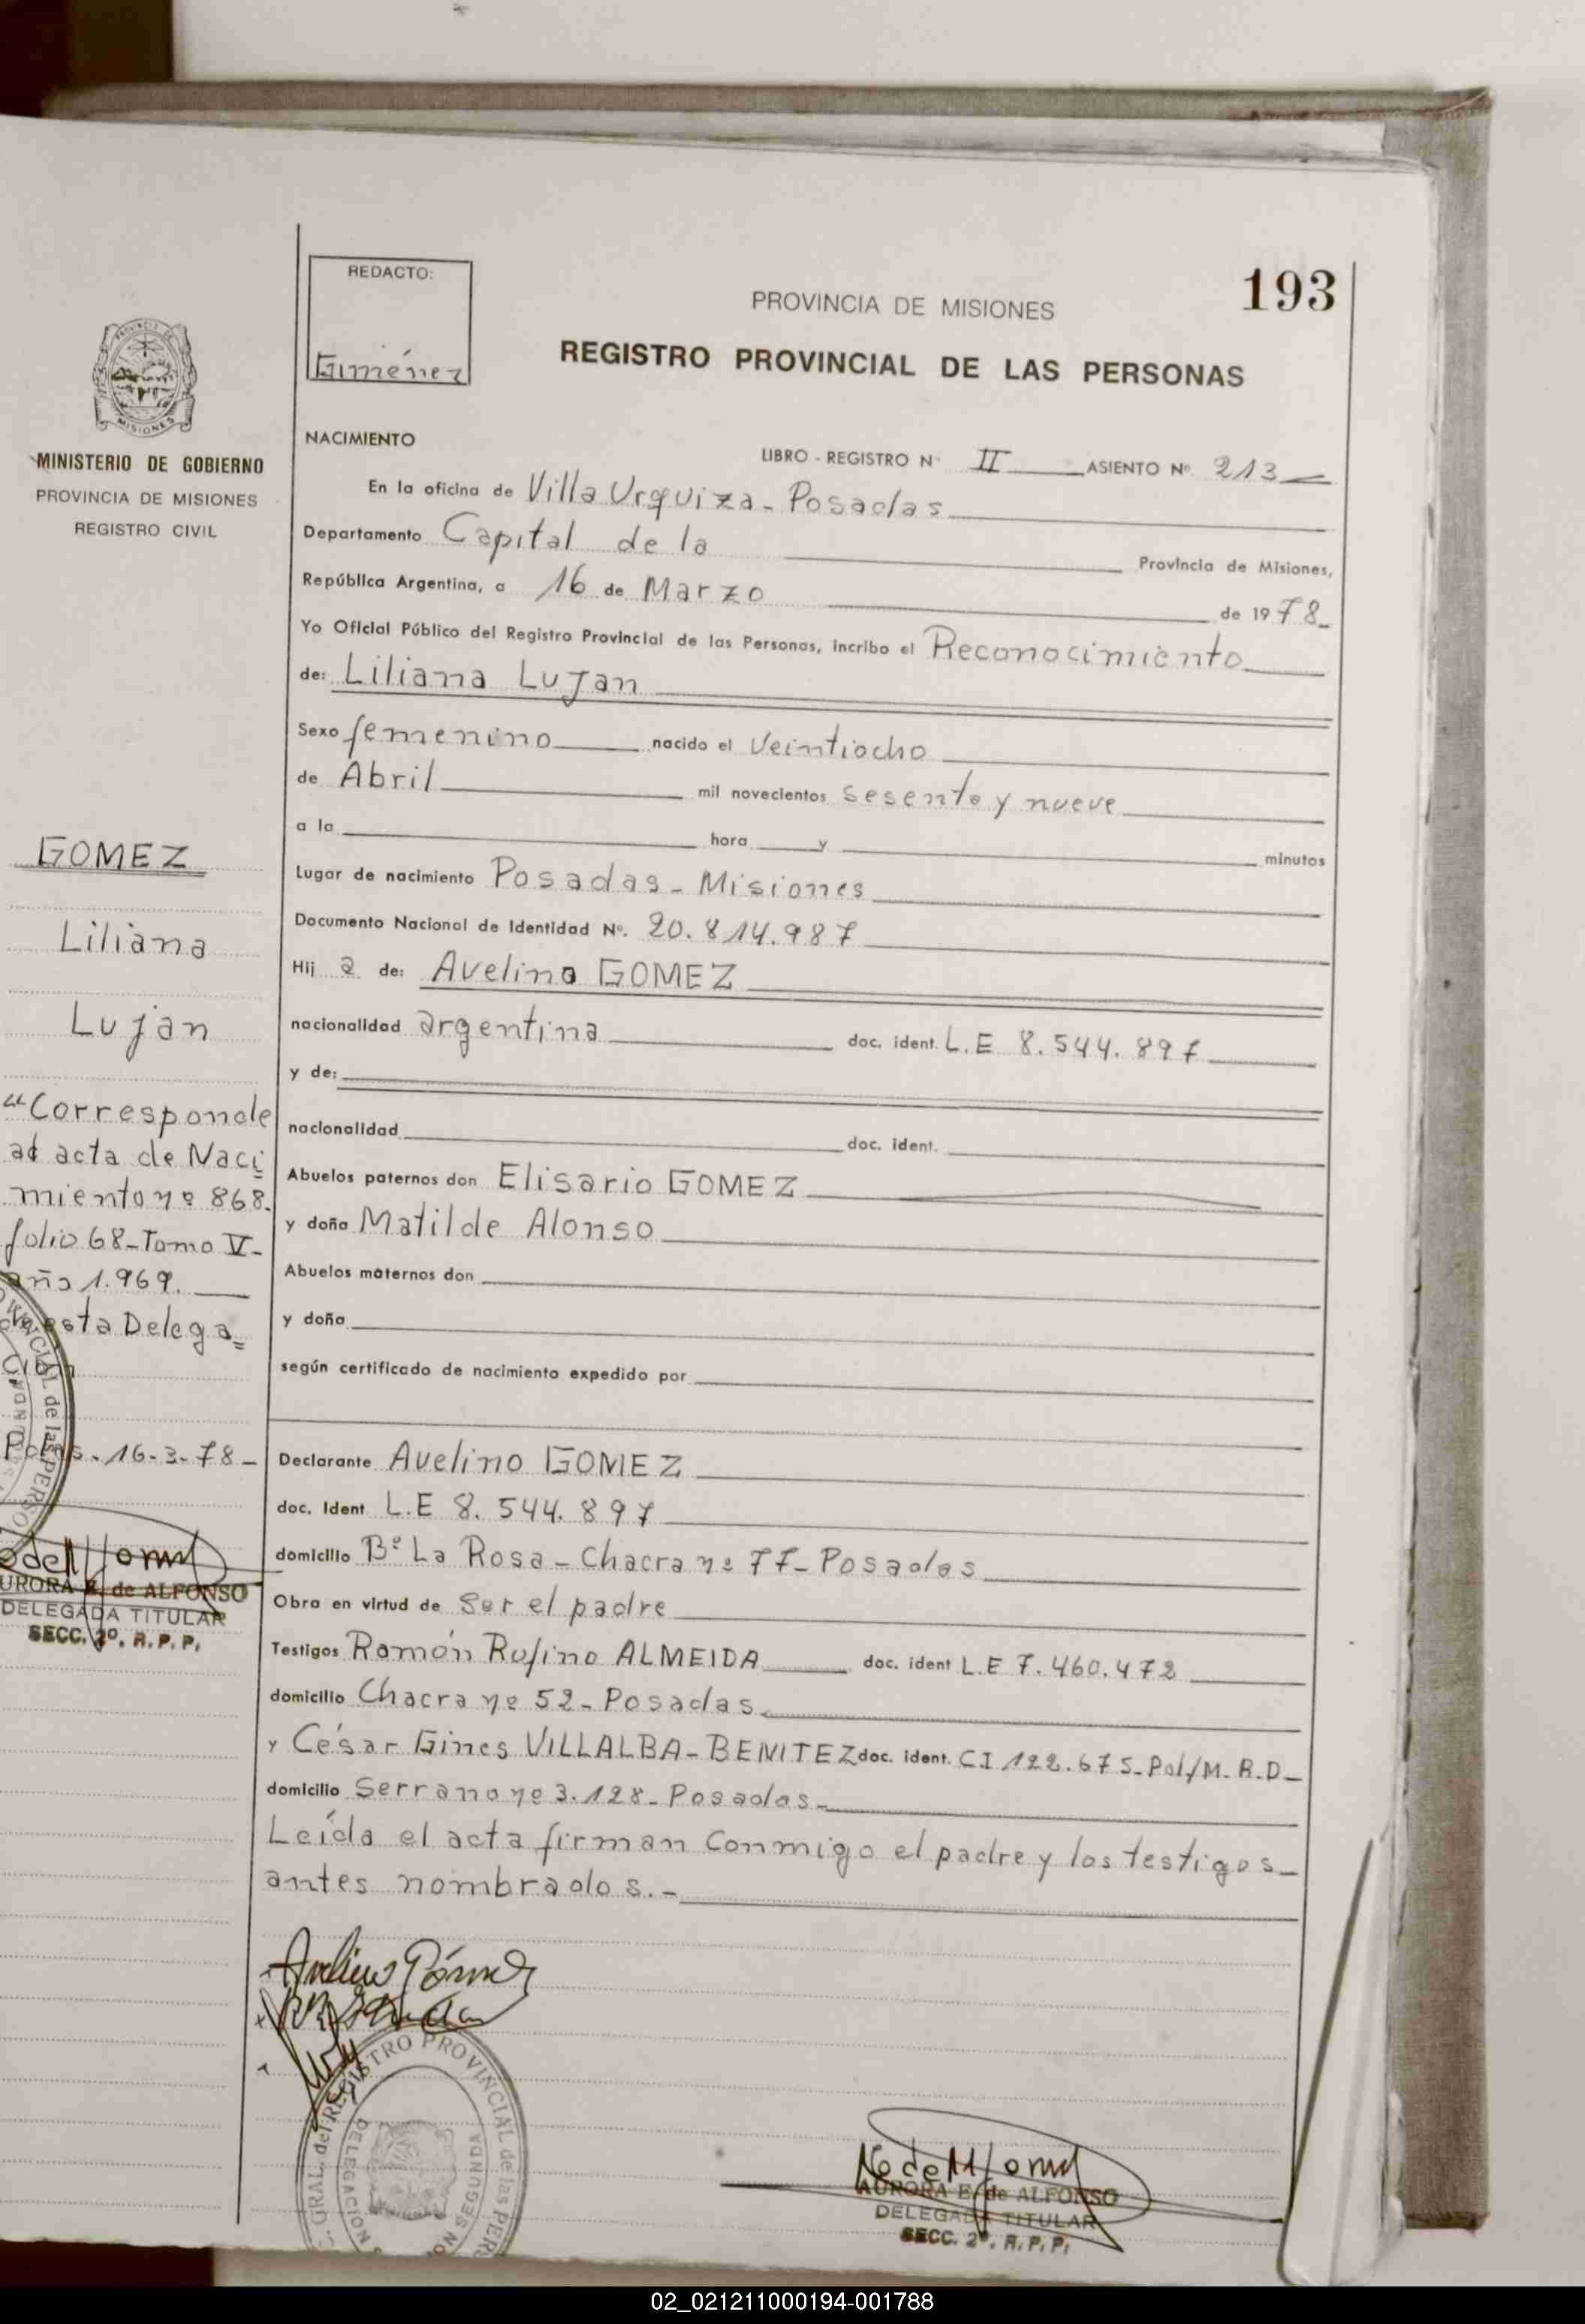 REDACTO:
Giménez
193
PROVINCIA DE MISIONES
REGISTRO PROVINCIAL DE LAS PERSONAS
MISIONES
MINISTERIO DE GOBIERNO
PROVINCIA DE MISIONES
REGISTRO CIVIL
GOMEZ
Liliana
Lujan
"Corresponde
al acta de Naci
miento nº 868.
folio 68-Tomo V-
año 1.969.
de esta Delega
ción
Pdas.-16-3-78-
AURORA E. de ALFONSO
DELEGADA TITULAR
SECC. 2º. R. P. P.
NACIMIENTO
LIBRO - REGISTRO Nº II ASIENTO Nº. 213
En la oficina de Villa Urquiza - Posadas
Departamento Capital de la Provincia de Misiones,
República Argentina, a 16 de Marzo de 1978
Yo Oficial Público del Registro Provincial de las Personas, incribo el Reconocimiento
de: Liliana Lujan
Sexo femenino nacido el Veintiocho
de Abril mil novecientos sesenta y nueve
a la hora y minutos
Lugar de nacimiento Posadas - Misiones
Documento Nacional de Identidad Nº. 20.814.987
Hij a de: Avelino GOMEZ
nacionalidad argentina doc. ident. L.E 8.544.897
y de:
nacionalidad doc. ident.
Abuelos paternos don Elisario GOMEZ
y doña Matilde Alonso
Abuelos maternos don
y doña
según certificado de nacimiento expedido por
Declarante Avelino GOMEZ
doc. Ident L.E 8.544.897
domicilio Bº La Rosa - Chacra nº 77 - Posadas
Obra en virtud de Ser el padre
Testigos Ramón Rufino ALMEIDA doc. ident L.E 7.460.472
domicilio Chacra nº 52 - Posadas
y César Gines VILLALBA-BENITEZ doc. ident. C.I 122.675-Pol/M.R.D-
domicilio Serrano nº 3.128 - Posadas-
Leída el acta firman conmigo el padre y los testigos
antes nombrados.-
Avelino Gómez
GRAL. del REGISTRO PROVINCIAL de las PERS
DELEGACION
SEGUNDA
AURORA E. de ALFONSO
DELEGADA TITULAR
SECC. 2º. R. P. P.
02_021211000194-001788